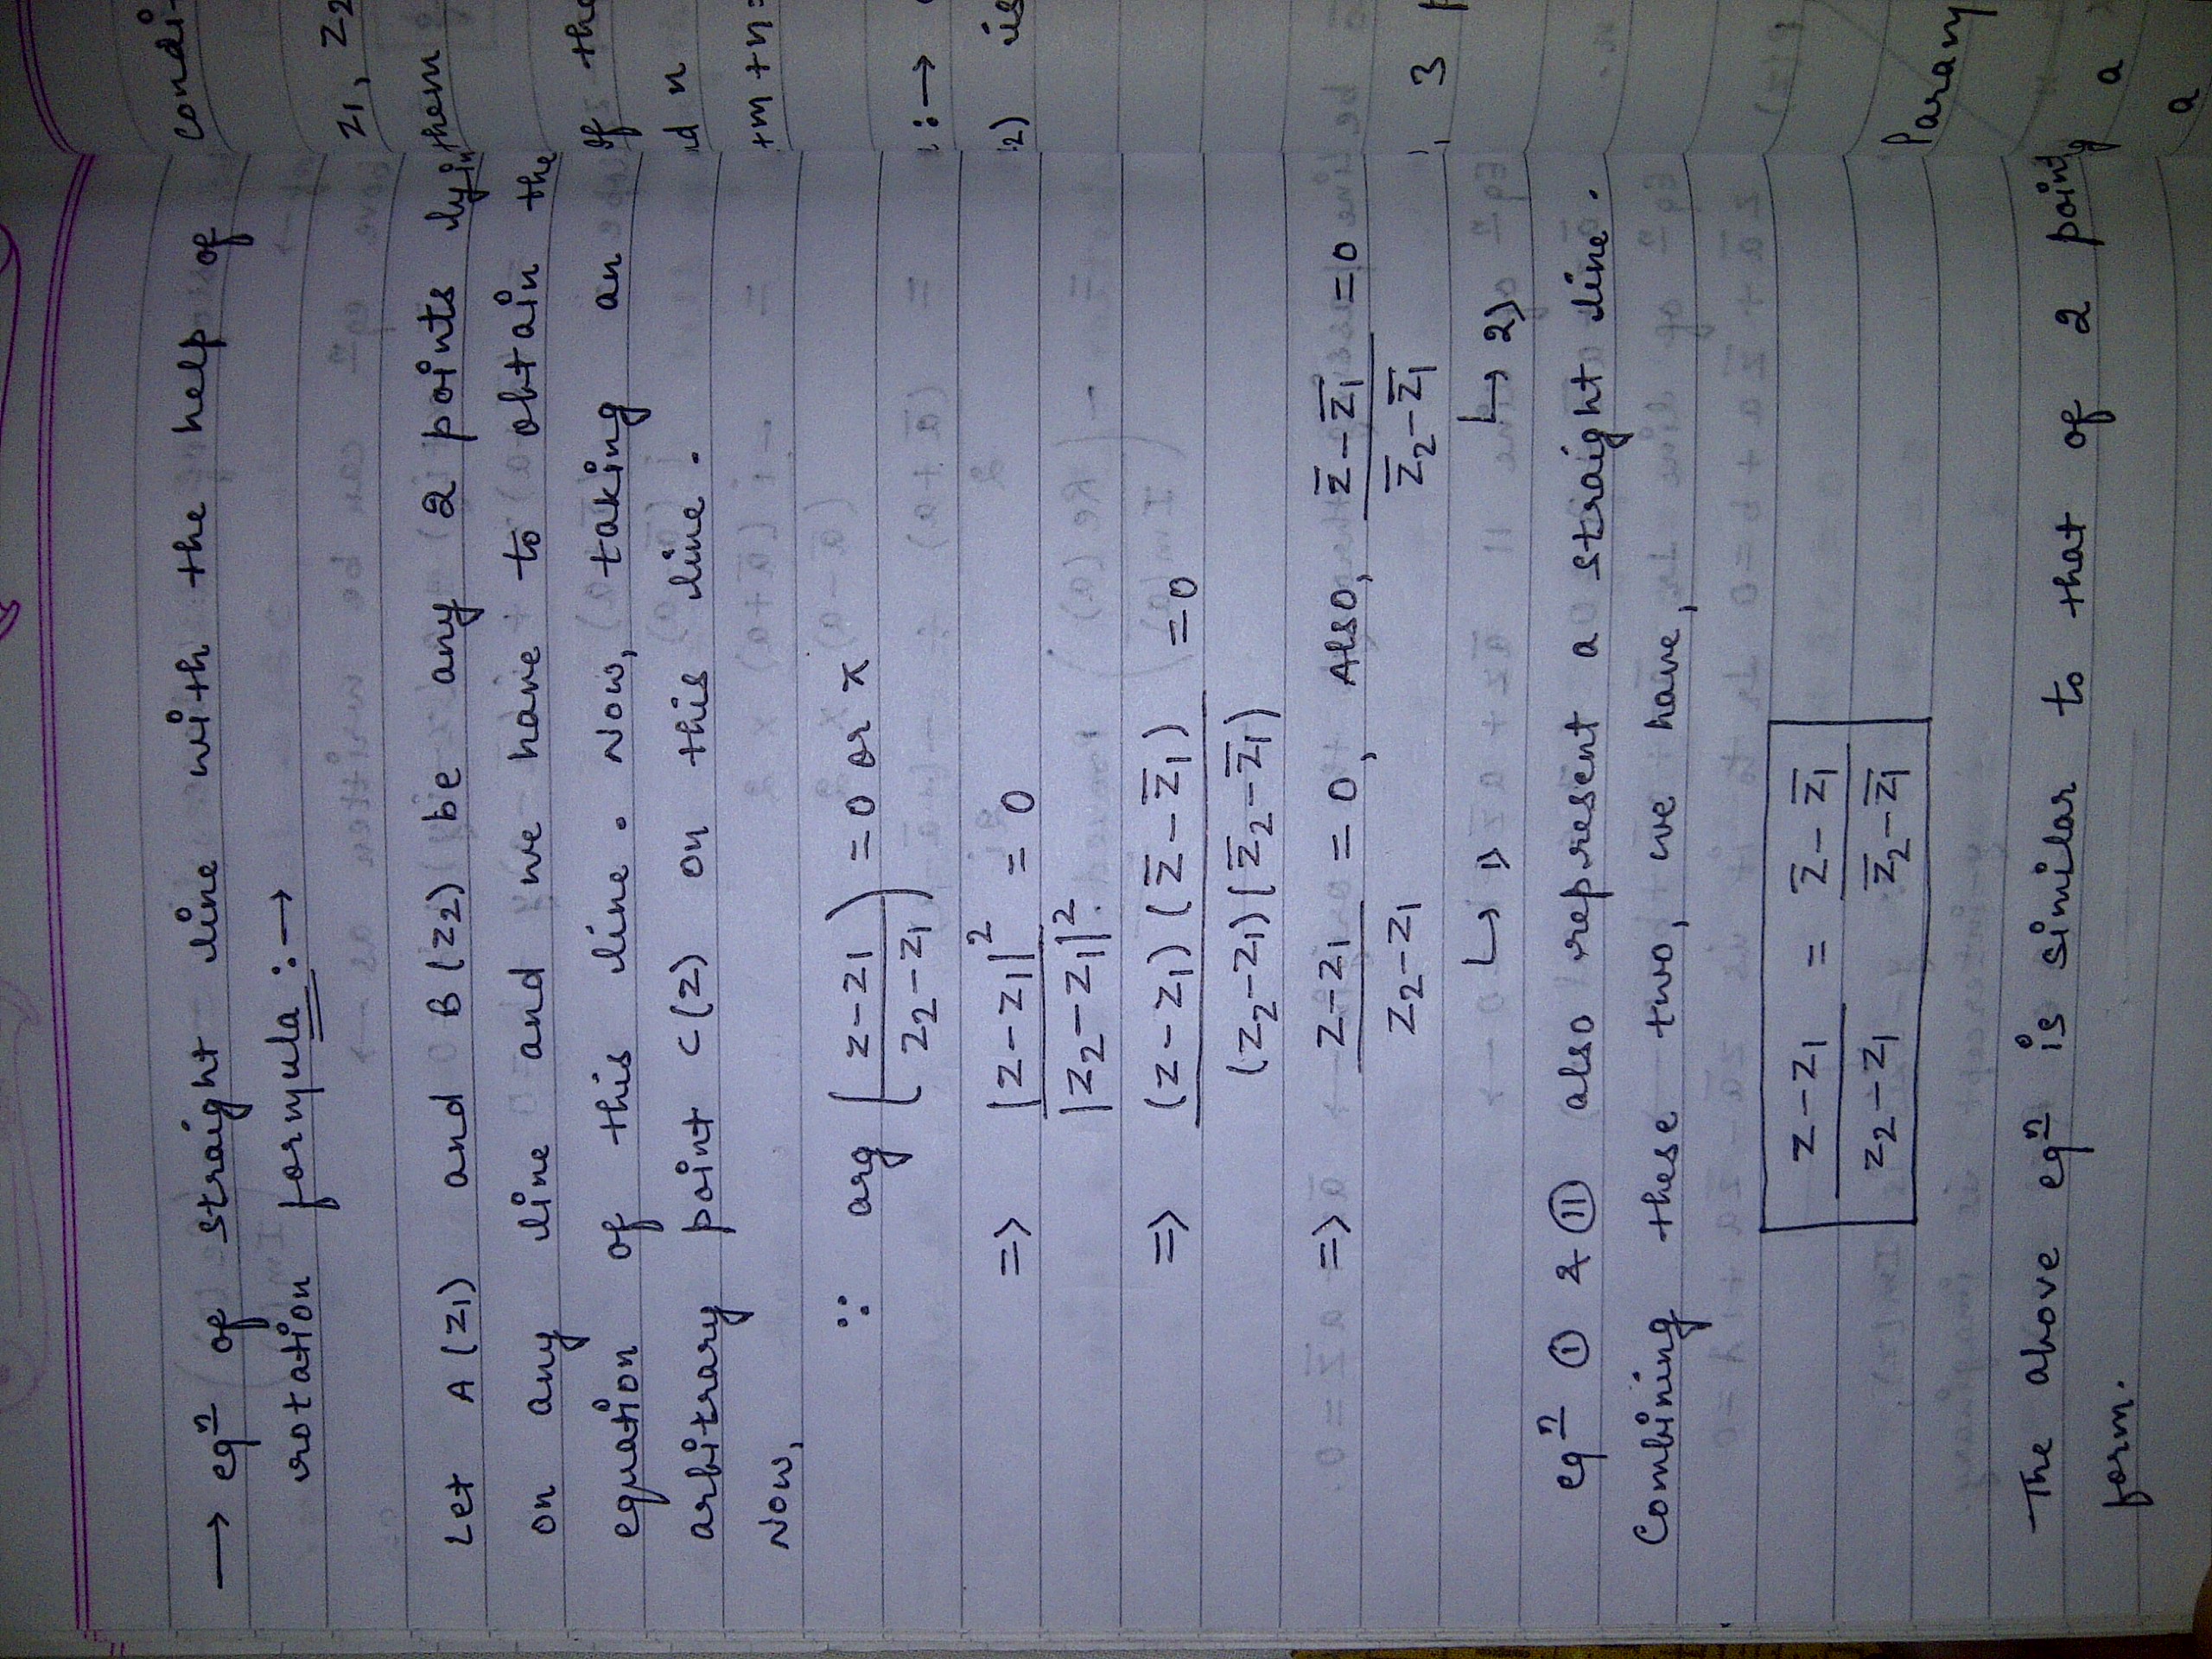 → eqⁿ of straight line with the help of
rotation formula :→
Let A(z1) and B(z2) be any 2 points lyin
on any line and we have to obtain the
equation of this line. Now, taking an
arbitrary point C(z) on this line.
Now,
∵ arg ( z-z1 / z2-z1 ) = 0 or π
=> |z-z1|² / |z2-z1|² = 0
=> (z-z1)(z̄-z̄1) / (z2-z1)(z̄2-z̄1) = 0
=> z-z1 / z2-z1 = 0, Also, z̄-z̄1 / z̄2-z̄1 = 0
↳ 1) ↳ 2)
eqⁿ Ⓘ & Ⓘ Ⓘ also represent a straight line.
Combining these two, we have,
z-z1 / z2-z1 = z̄-z̄1 / z̄2-z̄1
The above eqⁿ is similar to that of 2 point
form.
condi-
z1, z2
them
If the
nd n
+m+n=
:→
2) is
, 3 p
Param
a
a